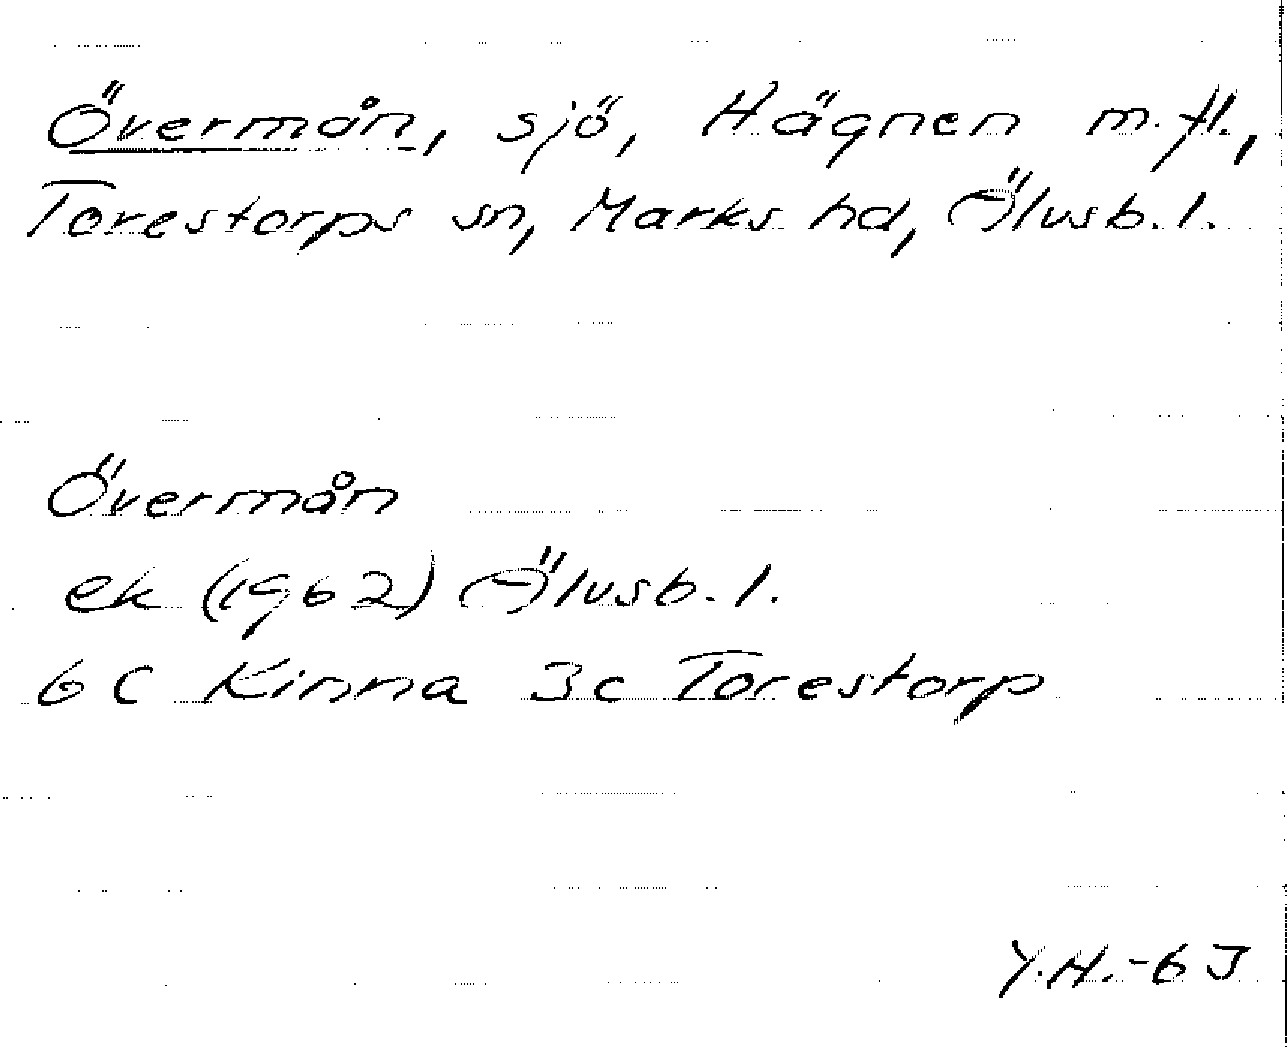 Övermån, sjö, Hägnen m.fl.,
Torestorps sn, Marks hd, Älvsb. l.
Övermån
ek (1962) Älvsb. l.
6 C Kinna 3c Torestorp
Y.H.-63